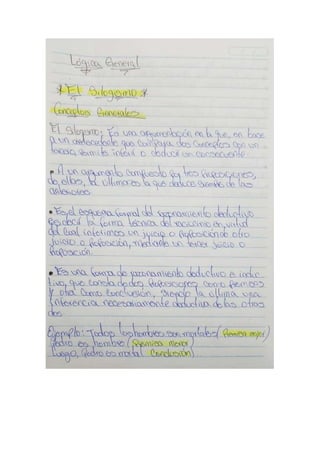 Lógica General
* El Silogismo *
Conceptos Generales
El Silogismo: Es una argumentación en la que, en base
a un antecedente que compara dos conceptos con un
tercero, permite inferir o deducir un consecuente.
• A un argumento compuesto por tres proposiciones,
de ellas, la última es la que deduce siempre de las
anteriores
• Es el esquema formal del razonamiento deductivo
es decir la forma técnica del raciocinio en virtud
del cual inferimos un juicio o proposición de otro
juicio o proposición, mediante un tercer juicio o
Proposición.
• Es una forma de razonamiento deductivo e induc
tivo, que consta de dos proposiciones como premisas
y otra como conclusión, siendo la última una
inferencia necesariamente deductiva de las otras
dos
Ejemplo: Todos los hombres son mortales (Premisa mayor)
Pedro es hombre (Premisa menor)
luego, Pedro es mortal (Conclusión)